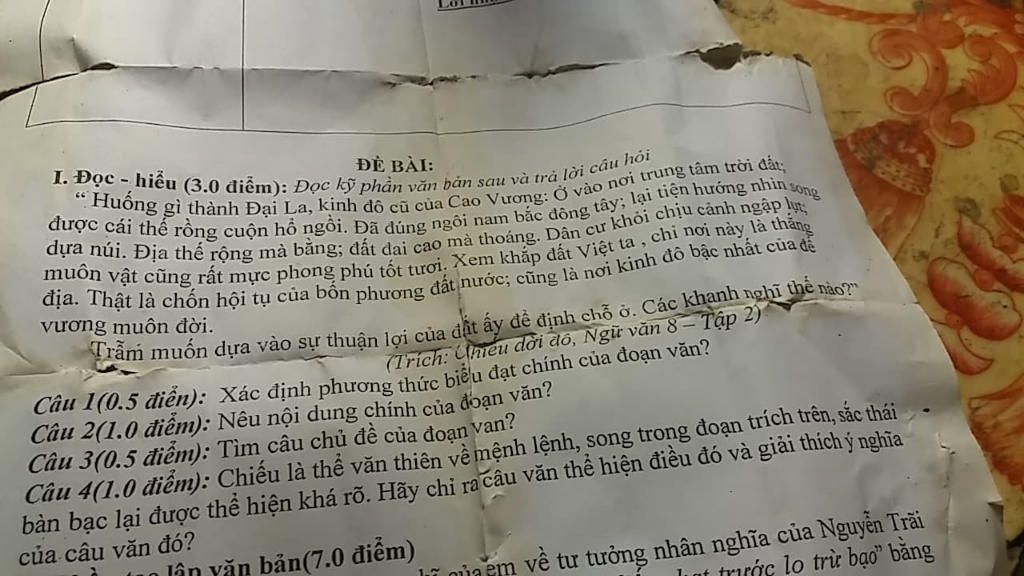 ĐỀ BÀI:
I. Đọc - hiểu (3.0 điểm): Đọc kỹ phần văn bản sau và trả lời câu hỏi
“ Huống gì thành Đại La, kinh đô cũ của Cao Vương: Ở vào nơi trung tâm trời đất;
được cái thế rồng cuộn hổ ngồi. Đã đúng ngôi nam bắc đông tây; lại tiện hướng nhìn sông
dựa núi. Địa thế rộng mà bằng; đất đai cao mà thoáng. Dân cư khỏi chịu cảnh ngập lụt;
muôn vật cũng rất mực phong phú tốt tươi. Xem khắp đất Việt ta , chỉ nơi này là thắng
địa. Thật là chốn hội tụ của bốn phương đất nước; cũng là nơi kinh đô bậc nhất của đế
vương muôn đời.
Trẫm muốn dựa vào sự thuận lợi của đất ấy để định chỗ ở. Các khanh nghĩ thế nào?”
(Trích: Chiếu dời đô, Ngữ văn 8 – Tập 2)
Câu 1(0.5 điểm): Xác định phương thức biểu đạt chính của đoạn văn?
Câu 2(1.0 điểm): Nêu nội dung chính của đoạn văn?
Câu 3(0.5 điểm): Tìm câu chủ đề của đoạn văn?
Câu 4(1.0 điểm): Chiếu là thể văn thiên về mệnh lệnh, song trong đoạn trích trên, sắc thái
bàn bạc lại được thể hiện khá rõ. Hãy chỉ ra câu văn thể hiện điều đó và giải thích ý nghĩa
của câu văn đó?
lập văn bản(7.0 điểm)
của em về tư tưởng nhân nghĩa của Nguyễn Trãi
trước lo trừ bạo” bằng